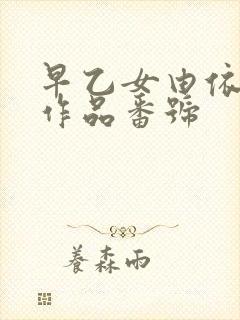 早乙女由依
作品番號
養森雨